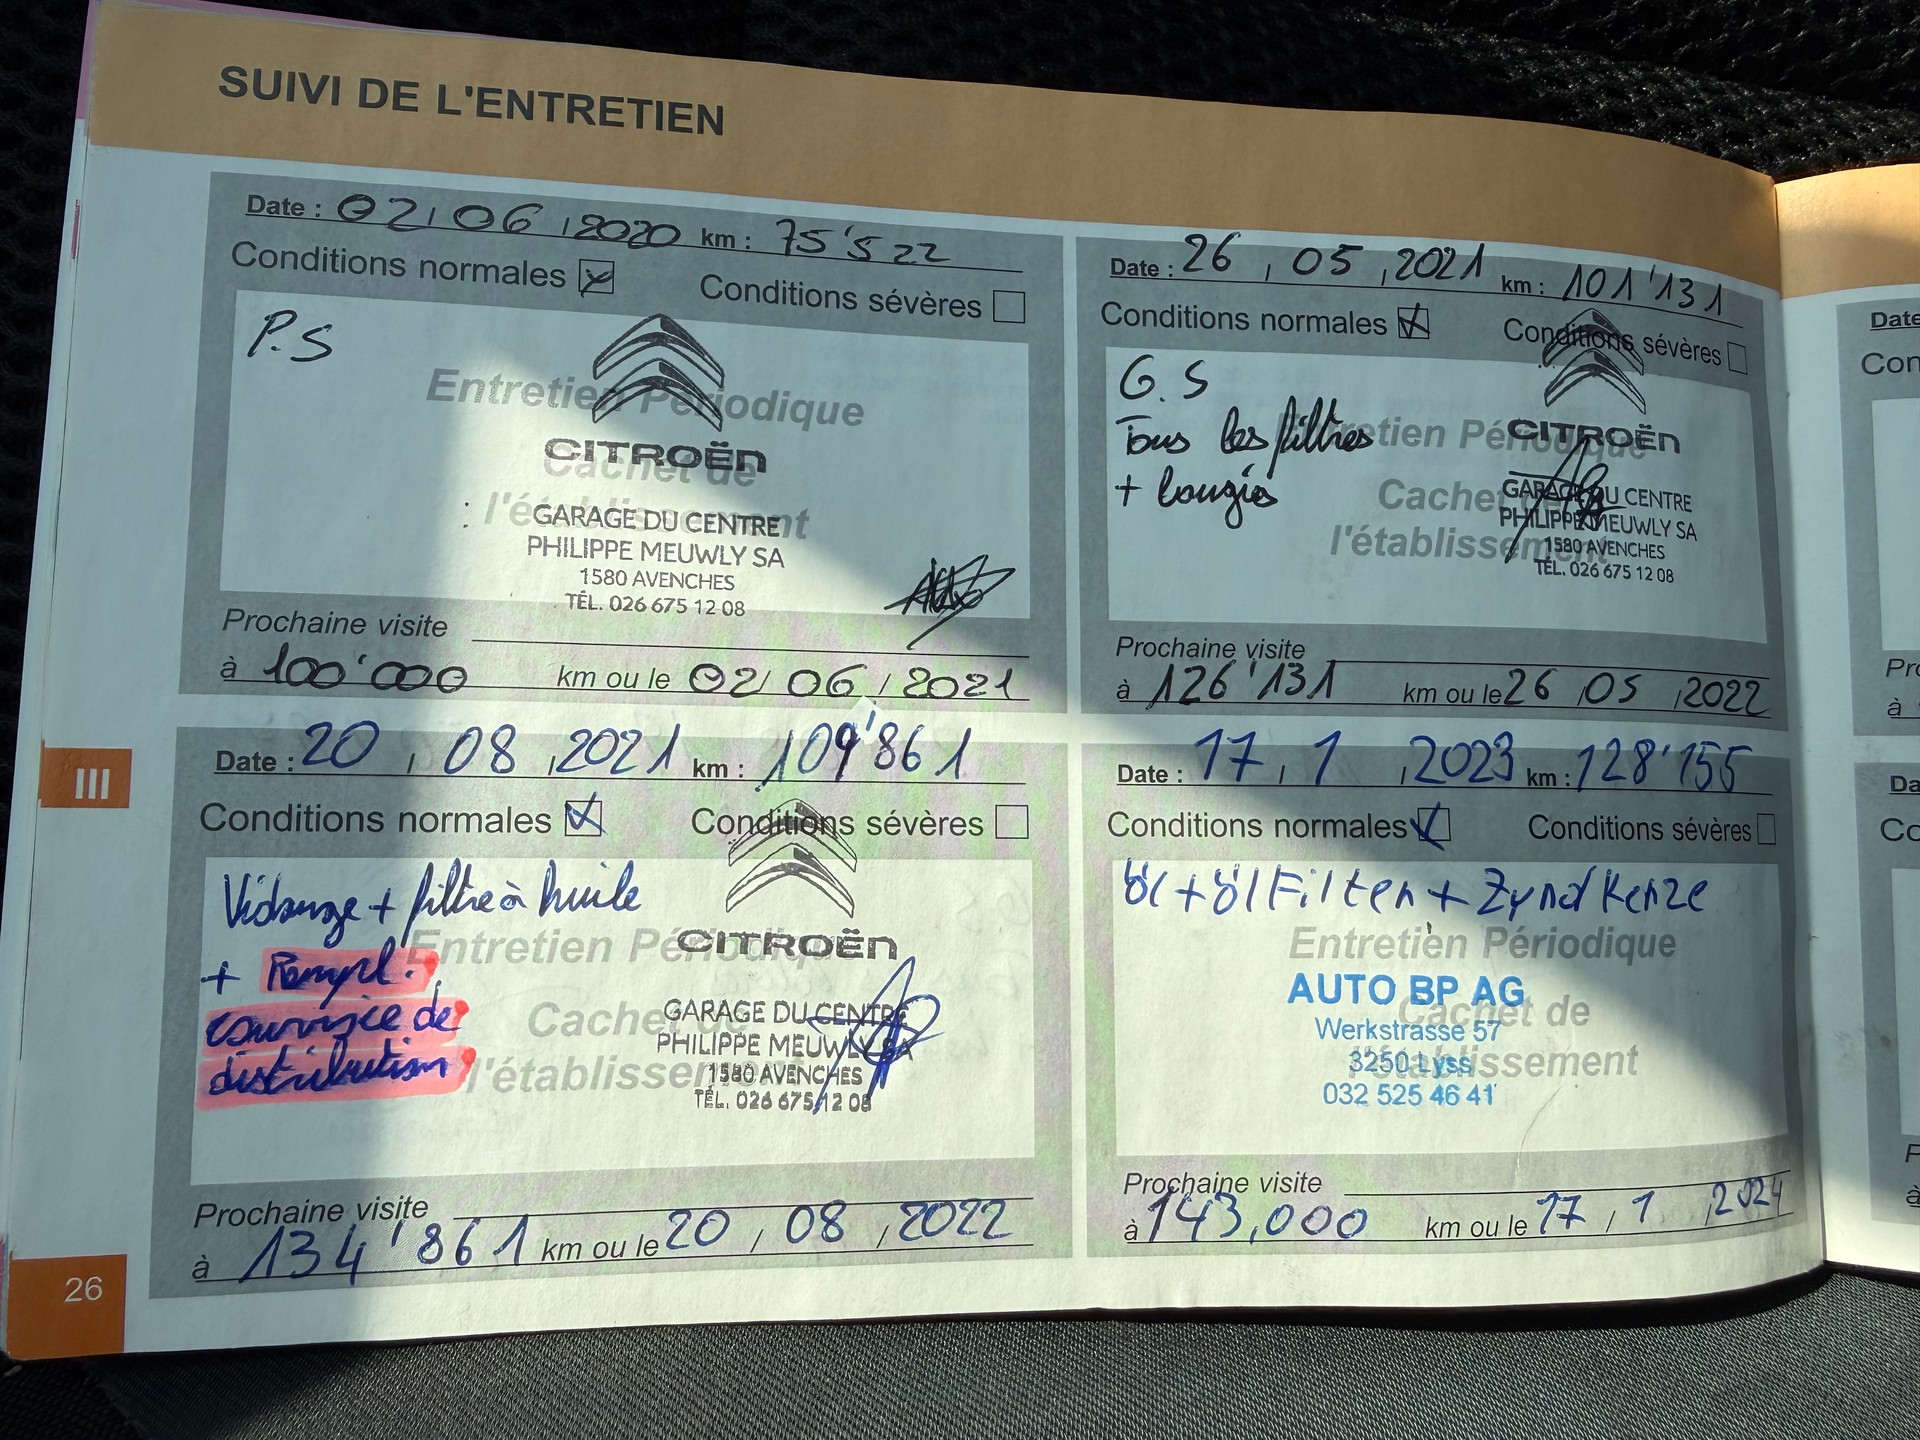 SUIVI DE L'ENTRETIEN
Date : 02 / 06 / 2020 km : 75'522
Conditions normales Conditions sévères
P.S
Entretien Périodique
Cachet de
l'établissement
CITROËN
GARAGE DU CENTRE
PHILIPPE MEUWLY SA
1580 AVENCHES
TÉL. 026 675 12 08
Prochaine visite
à 100'000 km ou le 02 / 06 / 2021
Date : 26 / 05 / 2021 km : 101'131
Conditions normales Conditions sévères
G.S
Tous les filtres
+ bougies
Entretien Périodique
Cachet de
l'établissement
CITROËN
GARAGE DU CENTRE
PHILIPPE MEUWLY SA
1580 AVENCHES
TÉL. 026 675 12 08
Prochaine visite
à 126'131 km ou le 26 / 05 / 2022
Date : 20 / 08 / 2021 km : 109'861
Conditions normales Conditions sévères
Vidange + filtre à huile
+ Rempl.
courroie de
distribution
Entretien Périodique
Cachet de
l'établissement
CITROËN
GARAGE DU CENTRE
PHILIPPE MEUWLY SA
1580 AVENCHES
TÉL. 026 675 12 08
Prochaine visite
à 134'861 km ou le 20 / 08 / 2022
Date : 17 / 1 / 2023 km : 128'155
Conditions normales Conditions sévères
öl + öl Filter + Zyndkerze
Entretien Périodique
Cachet de
l'établissement
AUTO BP AG
Werkstrasse 57
3250 Lyss
032 525 46 41
Prochaine visite
à 143,000 km ou le 17 / 1 / 2024
III
26
Date
Con
Pro
à
Da
Co
P
à